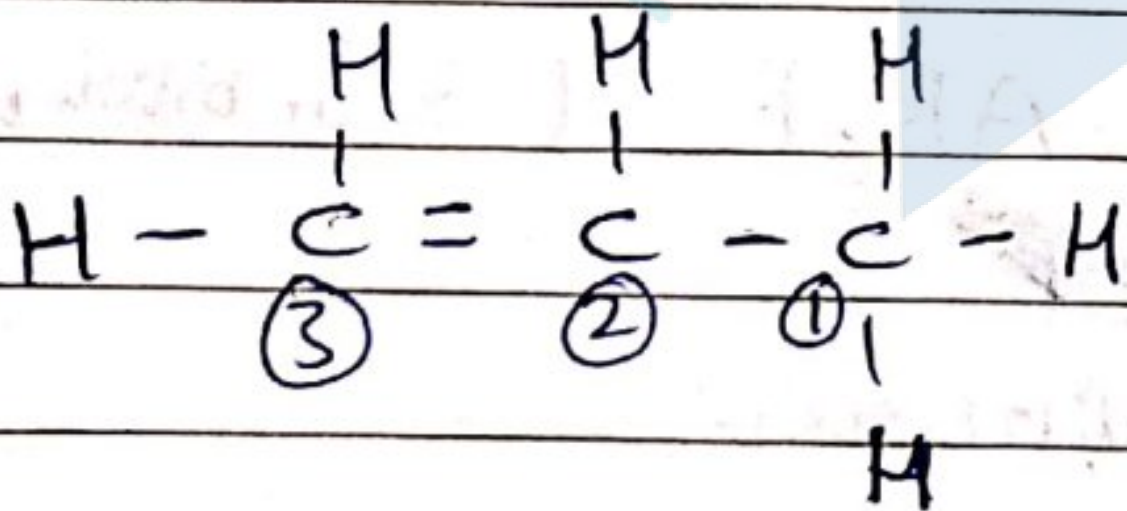 H H H
| | |
H - C = C - C - H
③ ② ① |
H